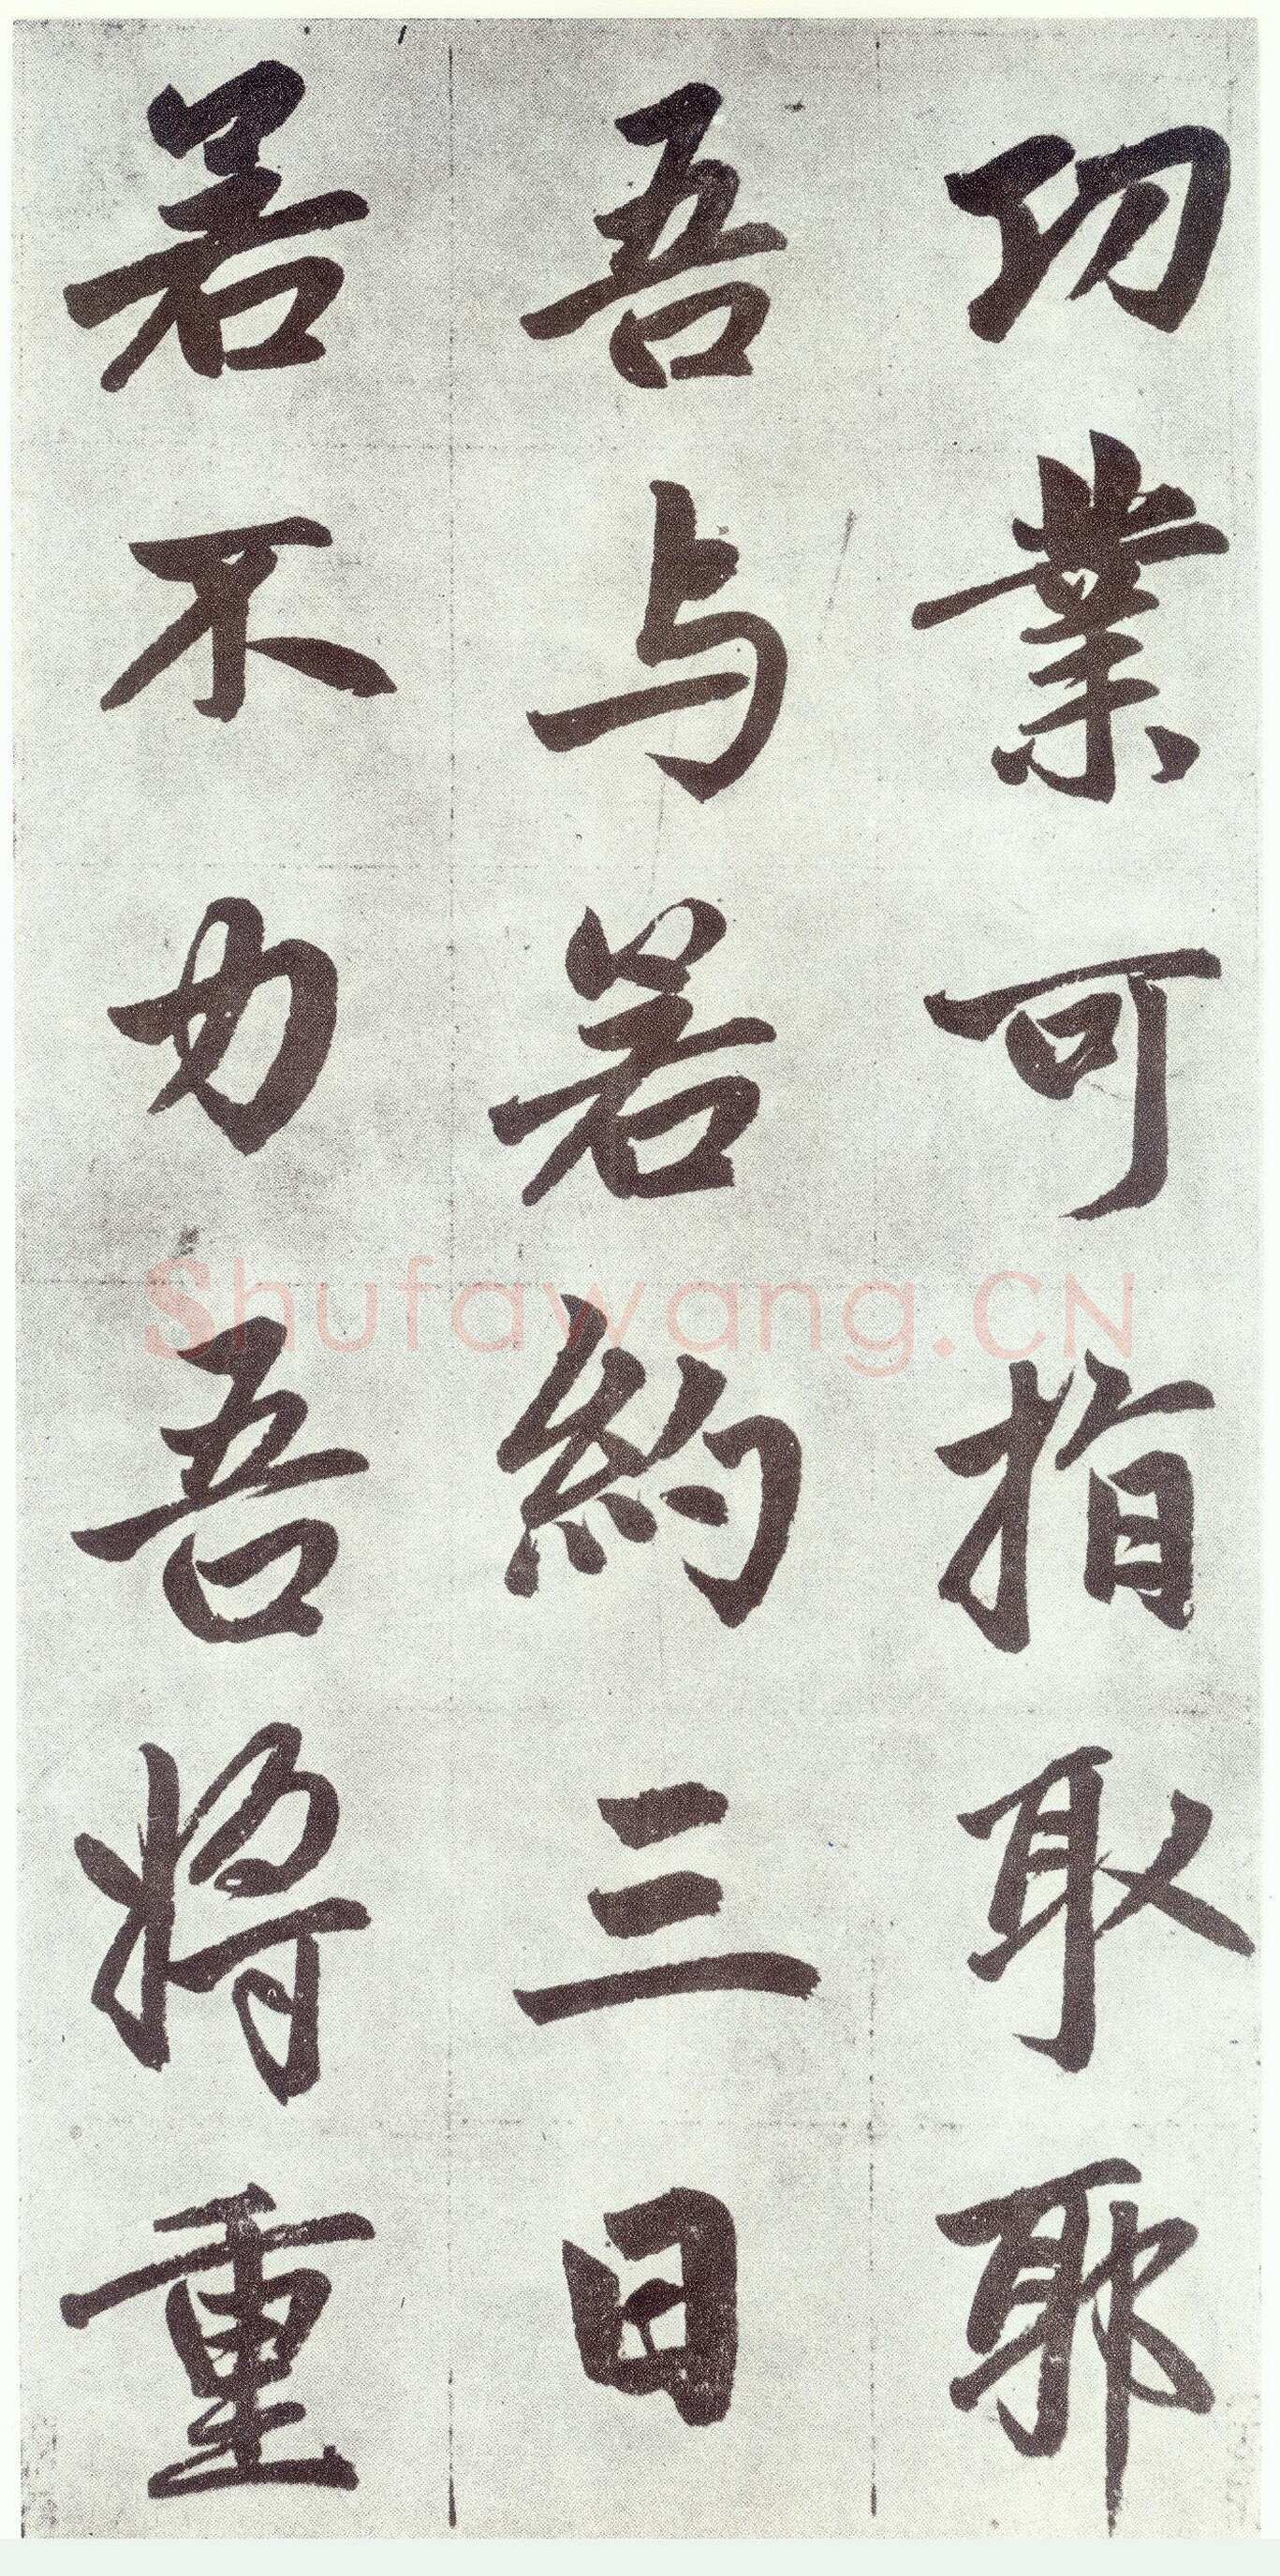 功業可指取耶
吾与若約三日
若不力吾将重
Shufawang.CN